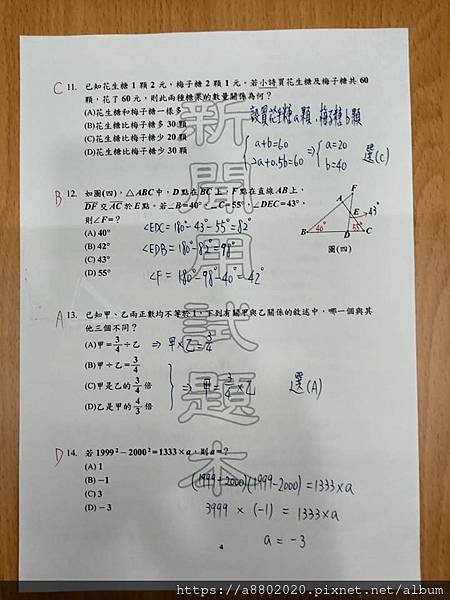 C 11. 已知花生糖 1 顆 2 元，梅子糖 2 顆 1 元。若小詩買花生糖及梅子糖共 60
顆，花了 60 元，則此兩種糖果的數量關係為何？
(A)花生糖和梅子糖一樣多
設買花生糖a顆，梅子糖b顆
(B)花生糖比梅子糖多 30 顆
(C)花生糖比梅子糖少 20 顆
(D)花生糖比梅子糖少 30 顆
a+b=60
2a+0.5b=60
⇒
a=20
b=40
選(C)
B 12. 如圖(四)，△ABC 中，D 點在 BC 上，F 點在直線 AB 上，
DF 交 AC 於 E 點。若∠B=40°，∠C=55°，∠DEC=43°，
則∠F=？
(A) 40°
(B) 42°
(C) 43°
(D) 55°
∠EDC=180°-43°-55°=82°
∠EDB=180°-82°=98°
∠F = 180°-98°-40°=42°
F
A
E
43°
B
40°
D
55°
C
圖(四)
A 13. 已知甲、乙兩正數均不等於 1，下列有關甲與乙關係的敘述中，哪一個與其
他三個不同？
(A)甲=3/4÷乙 ⇒ 甲×乙=3/4
(B)甲÷乙=3/4
(C)甲是乙的3/4倍
(D)乙是甲的4/3倍
⇒ 甲=3/4×乙
選(A)
D 14. 若 1999²－2000²=1333×a，則 a=？
(A) 1
(B) -1
(C) 3
(D) -3
(1999+2000)(1999-2000)=1333×a
3999 × (-1) = 1333×a
a = -3
4
新開用試題本
https://a8802020.pixnet.net/album